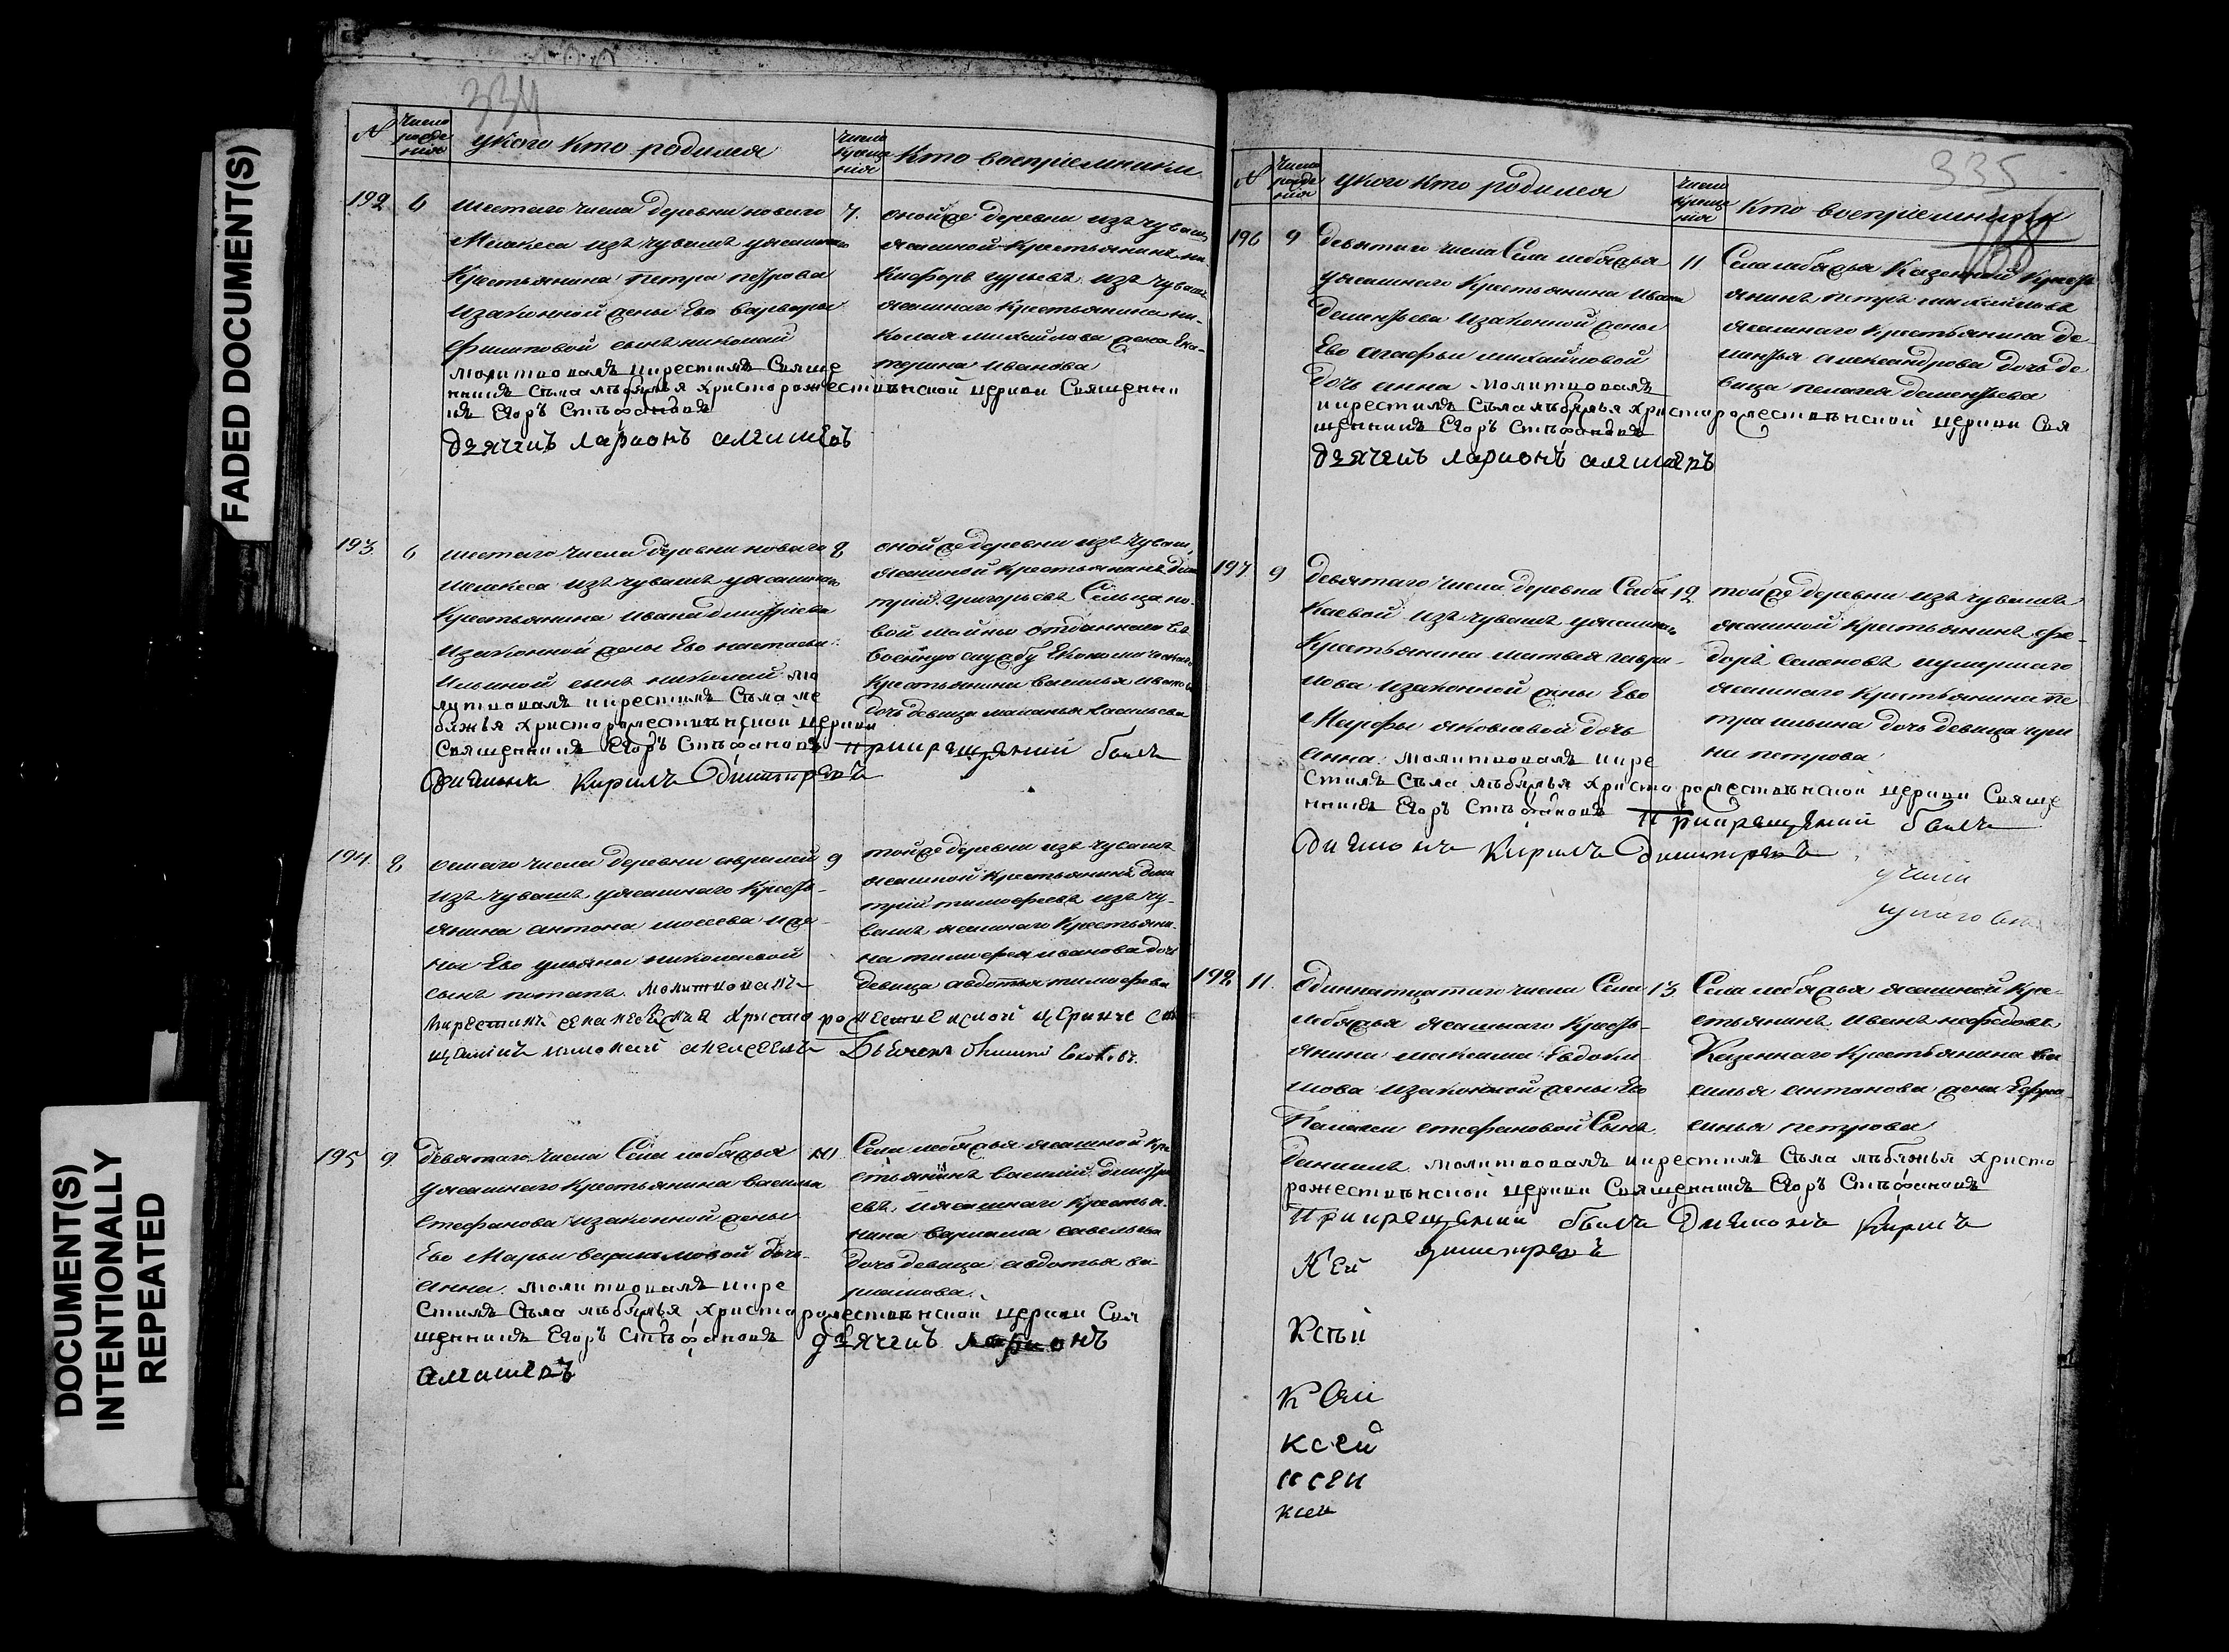 FADED DOCUMENT(S)
DOCUMENT(S)
INTENTIONALLY
REPEATED
334
№
Число рожде ния
у кого кто родился
Число креще ния
Кто восприемники
192
6
шестаго числа деревни новаго
Мелекеса изъ чувашъ уясашнаго
Крестьянина петра петрова
изаконной жены Ево варвары
филиповой сынъ николай
молитвовалъ икрестилъ Свяще
нникъ Села лебяжья христорождественской церкви Священни
къ Егоръ Стефановъ
дьячекъ ларионъ алешевъ
7.
оной же деревни изъ чувашъ
ясашной Крестьянинъ ни-
кифоръ гурьевъ изъ чувашъ
ясашнаго Крестьянина ни-
колая михайлова жена Ека-
терина иванова
193
6
шестаго числа деревни новаго
мелекеса изъ чувашъ уясашнаго
Крестьянина ивана дмитрiева
изаконной жены Ево настасьи
ильиной сынъ николай мо
литвовалъ икрестилъ Села ле
бяжья христорождественской церкви
Священникъ Егоръ Стефановъ прикрещении былъ
дияконъ Кирилъ Димитревъ
8
оной же деревни изъ чуваш
ясашной Крестьянинъ Дми
трiй григорьевъ Сельца но-
вой майны отданнаго въ
военную службу Економическаго
Крестьянина василья иванова
дочь девица маланья васильева
194
8
осмаго числа деревни авралей
изъ чувашъ уясашнаго Кресть-
янина антона моисеева иже-
ны Ево ульяны николаевой
сынъ потапъ. молитвовалъ
икрестилъ села лебежья христо рожественской церкви свя
щенникъ николай алексеевъ Дьячекъ
9
той же деревни изъ чувашъ
ясашной Крестьянинъ дми
трiй тимофеевъ изъ чу-
вашъ ясашнаго Крестьяни-
на тимофея иванова дочь
девица авдотья тимофеева
195
9
девятаго числа Села лебяжья
уясашнаго Крестьянина василья
Стефанова изаконной жены
Ево Марьи варламовой дочь
анна. молитвовалъ икре
Стилъ Села лебяжья христорождественской церкви Свя
щенникъ Егоръ Стефановъ дьячекъ ларионъ
алешевъ
10
Села лебяжья ясашной Кре
стьянинъ василий дмитри
евъ, иясашнаго Крестья-
нина варлама савельева
дочь девица авдотья ва-
рламова.
335
168
№
Число рожде ния
у кого кто родился
Число креще ния
Кто восприемники
196
9
девятаго числа Села лебяжья
уясашнаго Крестьянина ивана
Деменьтьева изаконной жены
Ево агафьи михайловой
дочь анна молитвовалъ
икрестилъ Села лебяжья христорождественской церкви Свя
щенникъ Егоръ Стефановъ
дьячекъ ларионъ алешевъ
11
Села лебяжья Казенной Кресть
янинъ петръ михайловъ
ясашнаго Крестьянина де
ментья александрова дочь де
вица пелагея дементьева
197
9
девятаго числа деревни Саба
каевой изъ чувашъ уясашнаго
Крестьянина матвея гаври-
лова изаконной жены Ево
Марфы яковлевой дочь
анна. молитвовалъ икре
стилъ Села лебяжья христорождественской церкви Свяще
нникъ Егоръ Стефановъ прикрещении былъ
дияконъ Кирилъ Димитревъ
12
той же деревни изъ чувашъ
ясашной Крестьянинъ фе-
доръ семеновъ иумершаго
ясашнаго Крестьянина пе
тра ильина дочь девица ири
на петрова
198
11.
Одиннатцатаго числа Села
лебяжья ясашнаго Кресть-
янина максима Евдоки
мова изаконной жены Ево
Палагеи стефановой Сынъ
даниилъ. молитвовалъ икрестилъ Села лебяжья христо
рожественской церкви Священникъ Егоръ Стефановъ
прикрещении былъ Дияконъ Кирилъ
димитревъ
13
Села лебяжья ясашной Кре-
стьянинъ иванъ нефедовъ
Казеннаго Крестьянина ва
силья антонова жена Ефро-
синья петрова
Ксей
ксей
ксей